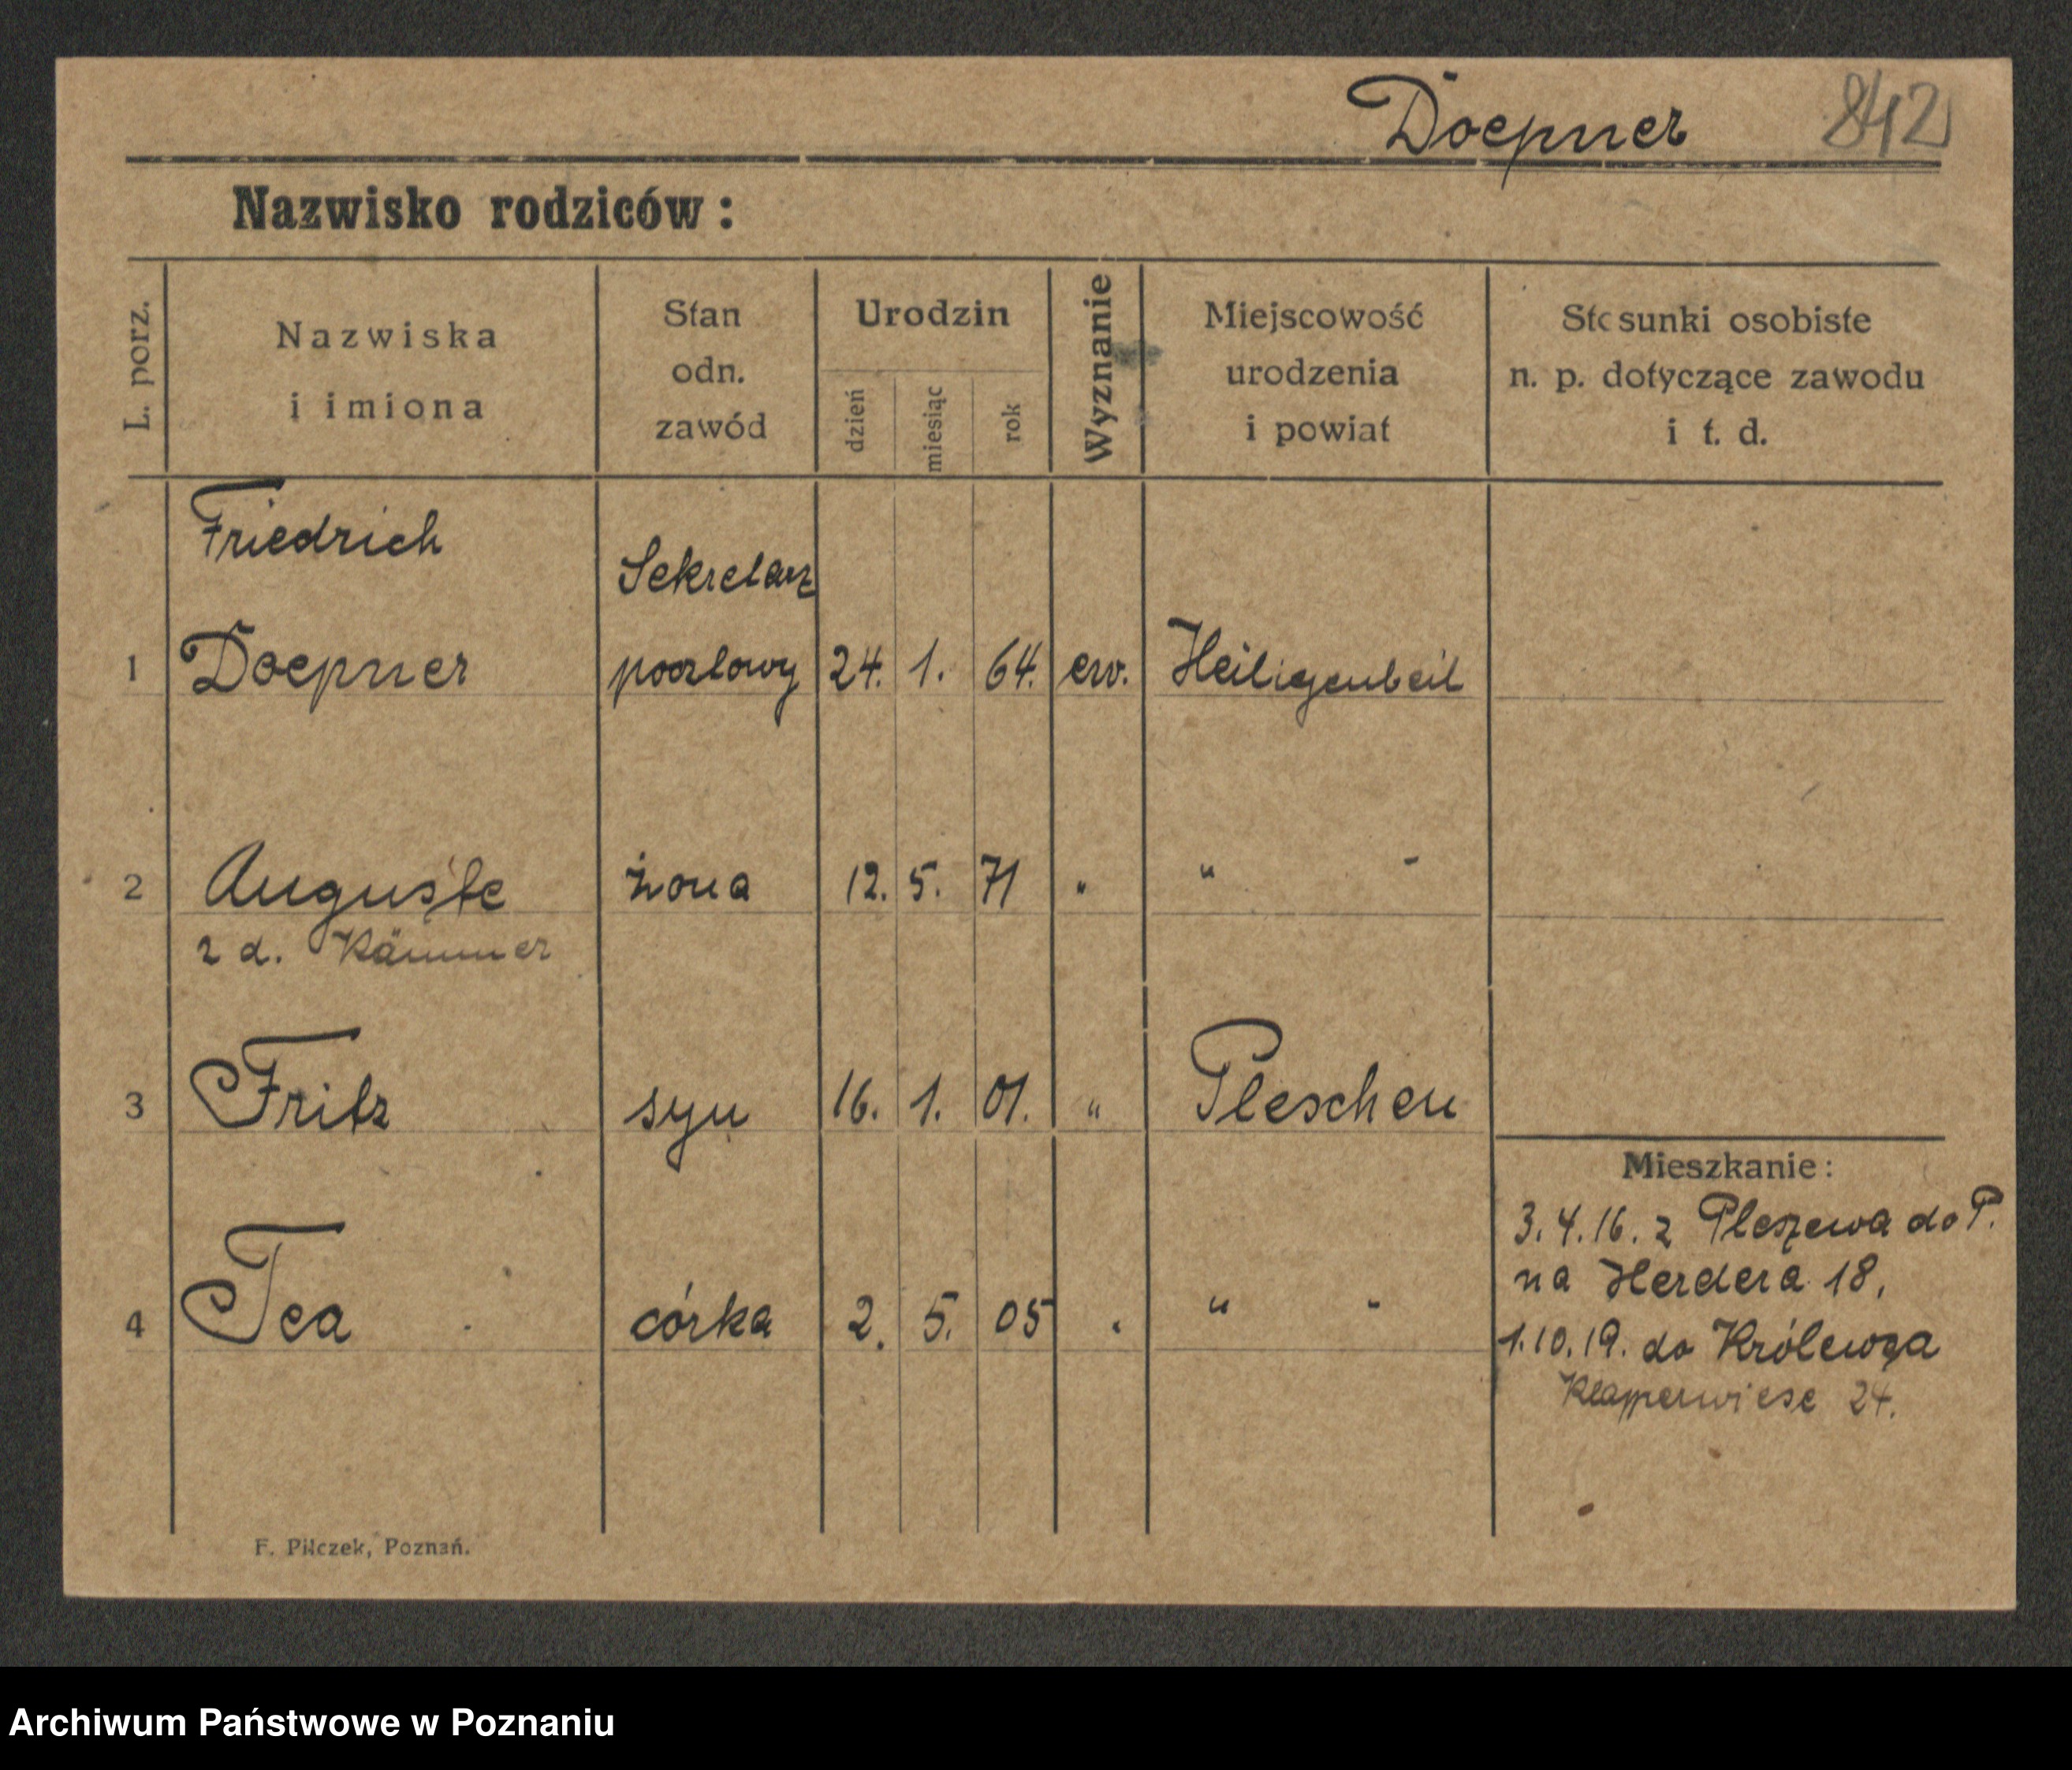 Doepner 842
Nazwisko rodziców:
L. porz.
Nazwiska
i imiona
Stan
odn.
zawód
Urodzin
dzień
miesiąc
rok
Wyznanie
Miejscowość
urodzenia
i powiat
Stosunki osobiste
n. p. dotyczące zawodu
i t. d.
Friedrich Sekretarz
1 Doepner pocztowy 24. 1. 64. ew. Heiligenbeil
2 Auguste żona 12. 5. 71 " " "
z d. Kämmer
3 Fritz syn 16. 1. 01. " Pleschen
Mieszkanie:
3.4.16. z Pleszewa do P.
na Herdera 18,
4 Tea córka 2. 5. 05 " " "
1.10.19. do Królewca
Klapperwiese 24.
F. Pilczek, Poznań.
Archiwum Państwowe w Poznaniu